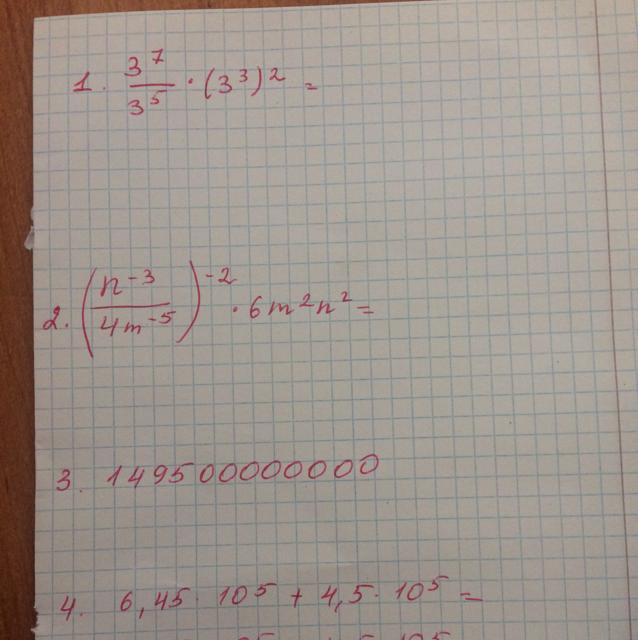 1. 3^7/3^5 · (3^3)^2 =
2. (n^-3/4m^-5)^-2 · 6m^2n^2 =
3. 149500000000
4. 6,45 · 10^5 + 4,5 · 10^5 =